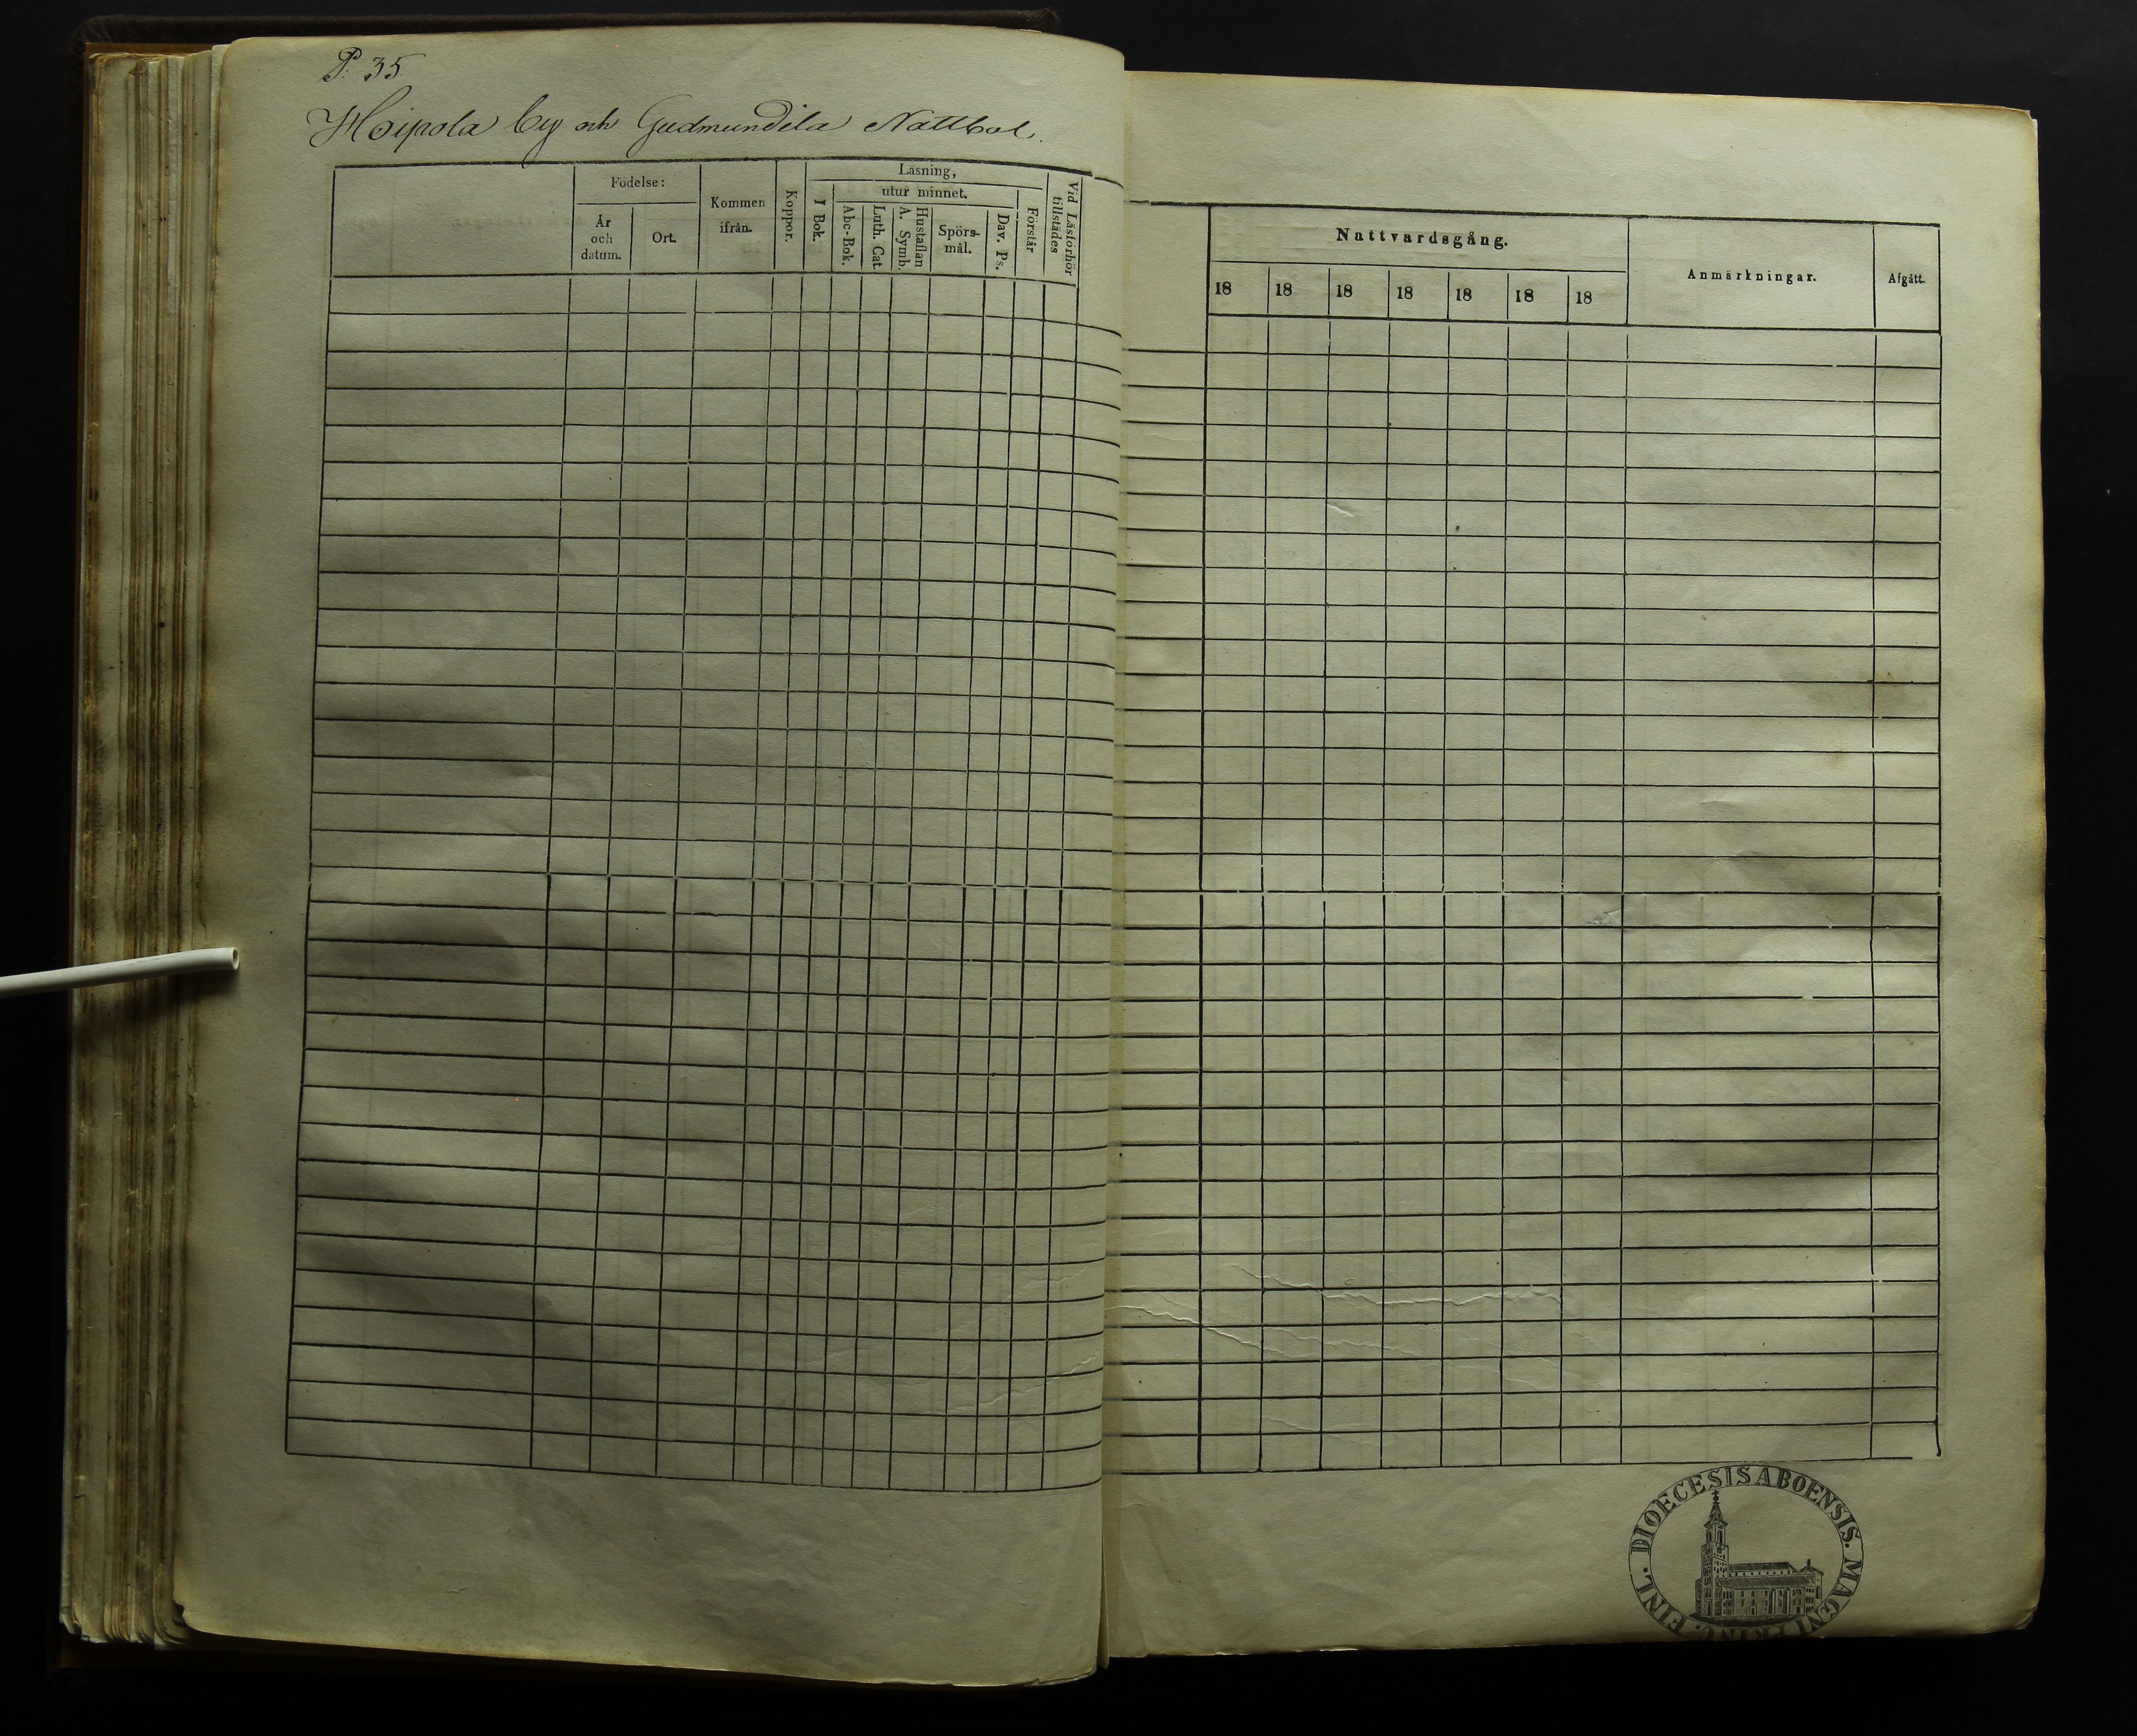 P. 35.
Hoipola by och Gudmundila Nattbol.
Födelse:
År
och
datum.
Ort.
Kommen
ifrån.
Koppor.
Läsning,
I Bok.
utur minnet.
Abc-Bok.
Luth. Cat.
Hustaflan
A. Symb.
Spörs-
mål.
Dav. Ps.
Förstår
Vid Läsförhör
tillstädes
Nattvardsgång.
18 18 18 18 18 18 18
Anmärkningar.
Afgått.
DIOECESIS ABOENSIS. MAGNI PRINC. FINL.